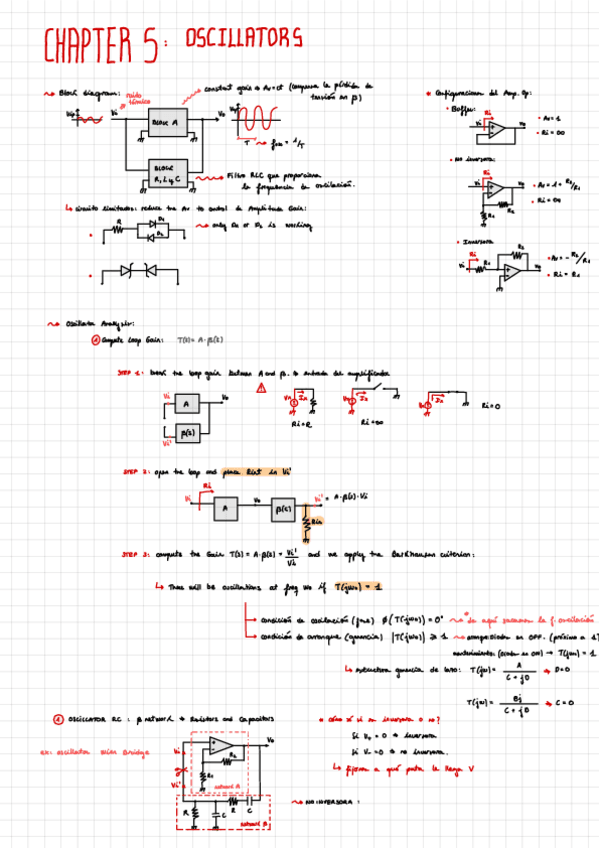 CHAPTER 5: OSCILLATORS
Block diagram:
ruido térmico
Vi
BLOCK A
Vo
constant gain → Av=ct (compensa la pérdida de
tensión en β)
T → fosc = 1/T
BLOCK
R, L y C
Filtro RLC que proporciona
la frecuencia de oscilación.
* Configuraciones del Amp. Op:
• Buffer:
Ri
Vi
Vo
• Av = 1
• Ri = ∞
• No inversora:
Ri
Vi
Vo
R2
R1
• Av = 1 + R2/R1
• Ri = ∞
• Inversora
Ri
Vi
R1
R2
Vo
• Av = - R2/R1
• Ri = R1
circuito limitador: reduce the Av to control de Amplitude Gain:
R
D1
D2
only D1 or D2 is working
Oscillator Analysis:
① Compute Loop Gain: T(s) = A·β(s)
STEP 1: break the loop gain between A and β. → entrada del amplificador
Vi
A
Vo
Vi'
β(s)
Ri=R
Ri=∞
Ri=0
STEP 2: open the loop and place Rint in Vi'
Vi
Ri
A
Vo
β(s)
Vi' = A·β(s)·Vi
Rin
STEP 3: compute the Gain T(s) = A·β(s) = Vi'/Vi and we apply the Barkhausen criterion:
There will be oscillations at freq wo if T(jwo) = 1
condición de oscilación (fase) ∅(T(jwo)) = 0° de aquí sacamos la f. oscilación
condición de arranque (ganancia) |T(jwo)| ≥ 1
→ T(jwo) = 1
estructura ganancia de lazo: T(jw) = A / (C + jD) → D=0
T(jw) = Bj / (C + jD) → C=0
① OSCILLATOR RC: β network → Resistors and Capacitors
ex: oscillator Wien Bridge
Vi
Vi'
Vo
R2
R1
network A
R
C
R
C
network B
* cómo sé si es inversora o no?
→ inversora
→ no inversora.
fijarse a qué pata le llega V
NO INVERSORA: